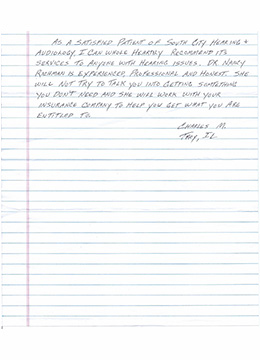 AS A SATISFIED PATIENT OF SOUTH CITY HEARING +
AUDIOLOGY, I CAN WHOLE HEARTEDLY RECOMMEND ITS
SERVICES TO ANYONE WITH HEARING ISSUES. DR. NANCY
RICHMAN IS EXPERIENCED, PROFESSIONAL AND HONEST. SHE
WILL NOT TRY TO TALK YOU INTO GETTING SOMETHING
YOU DON'T NEED AND SHE WILL WORK WITH YOUR
INSURANCE COMPANY TO HELP YOU GET WHAT YOU ARE
ENTITLED TO.
CHARLES M.
TROY, IL